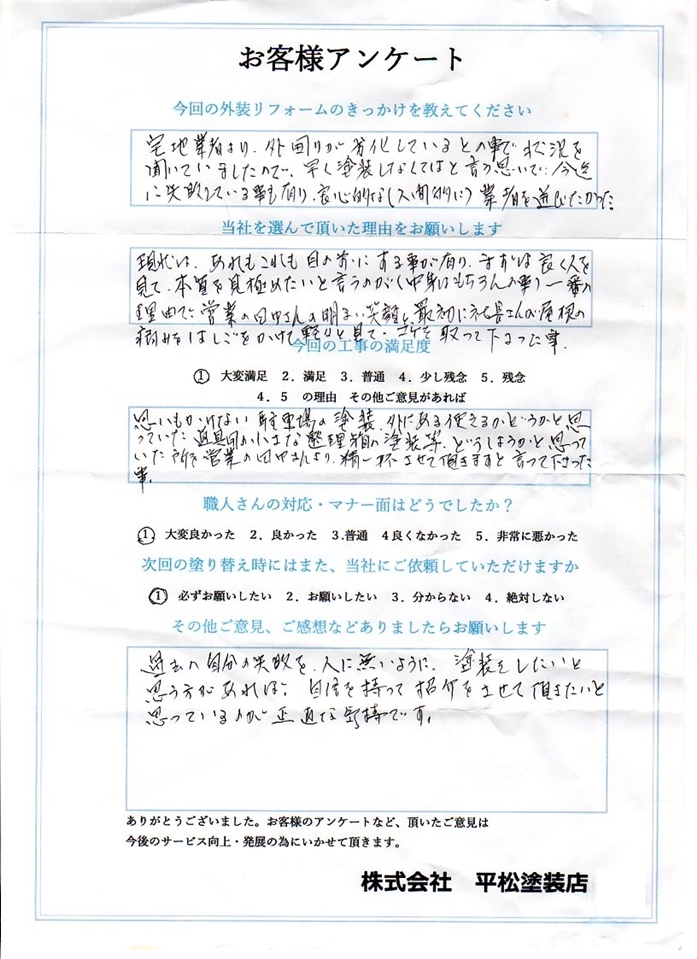 お客様アンケート
今回の外装リフォームのきっかけを教えてください
宅地業者より、外回りが劣化しているとの事で状況を
聞いていましたので、早く塗装しなくてはと言う思いで、今迄
に失敗している事も有り、良心的な(人間的に)業者を通じたかった
当社を選んで頂いた理由をお願いします
現代は、あれもこれも目の前にする事が有り、まずは良く人を
見て、本質を見極めたいと言うのが(中身はもちろんの事)一番の
理由で、営業の田中さんの明るい笑顔と最初に社長さんが屋根の
痛みをはしごをかけて 見て、 取って下さった事。
今回の工事の満足度
① 大変満足 2. 満足 3. 普通 4. 少し残念 5. 残念
4. 5 の理由 その他ご意見があれば
思いもかけない駐車場の塗装、外にある使えるかどうかと思
っていた道具向の小さな整理箱の塗装等、どうしようかと思って
いた所を営業の田中さんより、精一杯させて頂きますと言って下さった
事。
職人さんの対応・マナー面はどうでしたか？
① 大変良かった 2. 良かった 3.普通 4良くなかった 5. 非常に悪かった
次回の塗り替え時にはまた、当社にご依頼していただけますか
① 必ずお願いしたい 2. お願いしたい 3. 分からない 4. 絶対しない
その他ご意見、ご感想などありましたらお願いします
過去の自分の失敗を、人に無いように、塗装をしたいと
思う方があれば、自信を持って紹介をさせて頂きたいと
思っているのが正直な気持です。
ありがとうございました。お客様のアンケートなど、頂いたご意見は
今後のサービス向上・発展の為にいかせて頂きます。
株式会社 平松塗装店